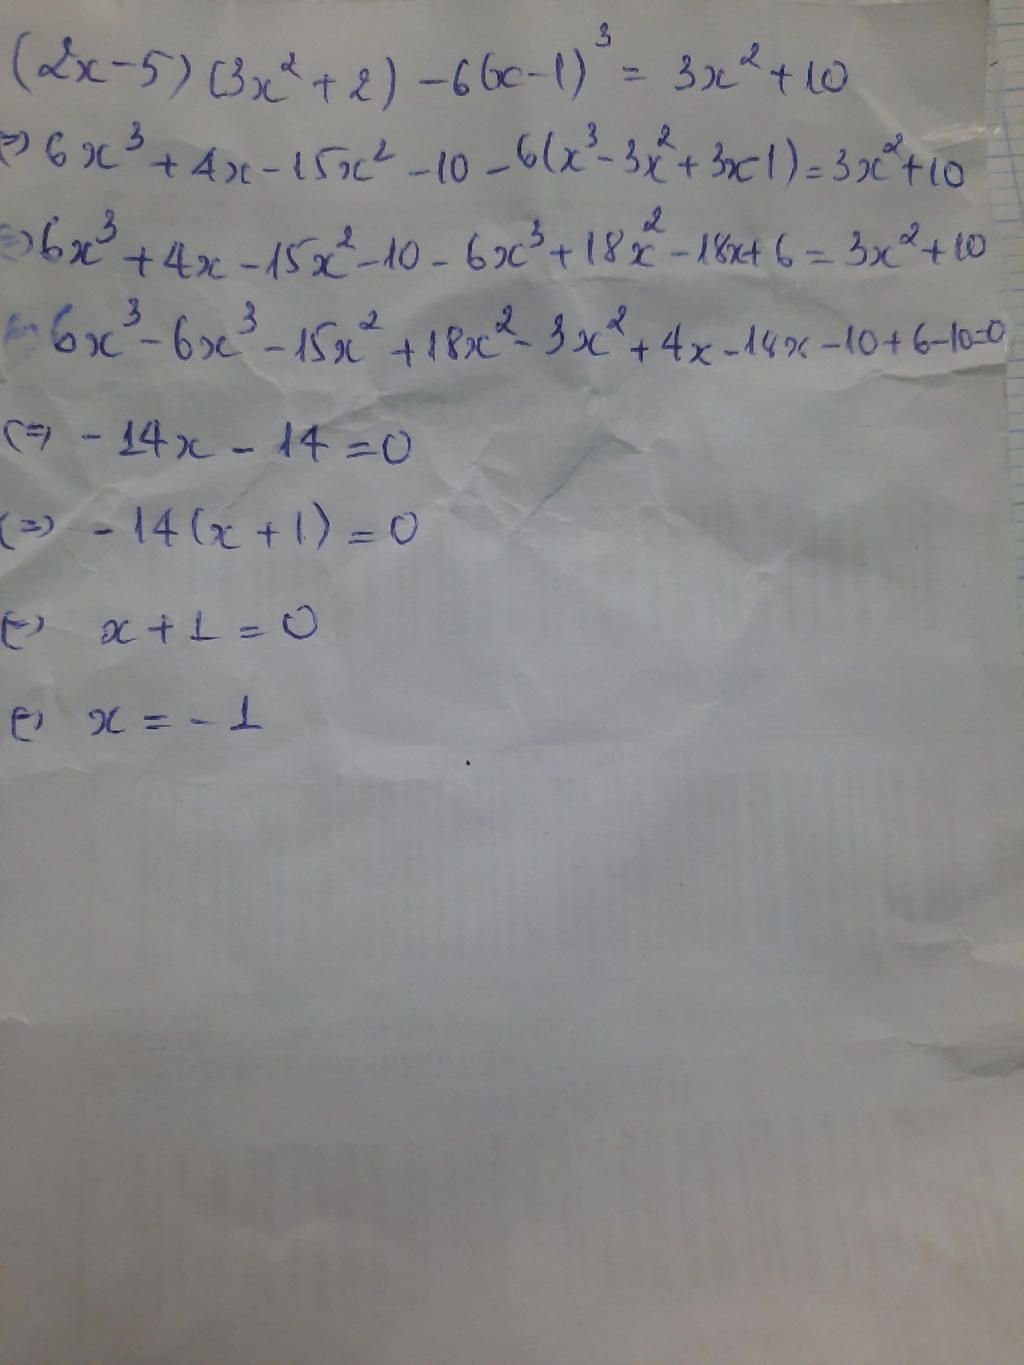 (2x-5)(3x²+2)-6(x-1)³ = 3x²+10
⇔) 6x³+4x-15x²-10-6(x³-3x²+3x-1)=3x²+10
⇔) 6x³+4x-15x²-10-6x³+18x²-18x+6=3x²+10
⇔ 6x³-6x³-15x²+18x²-3x²+4x-18x-10+6-10=0
(=) -14x-14=0
(=) -14(x+1)=0
(=) x+1=0
(=) x=-1